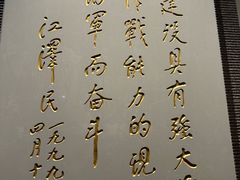 建設具有強大
作戰能力的現
海軍而奮斗
江澤民
一九九九
四月十